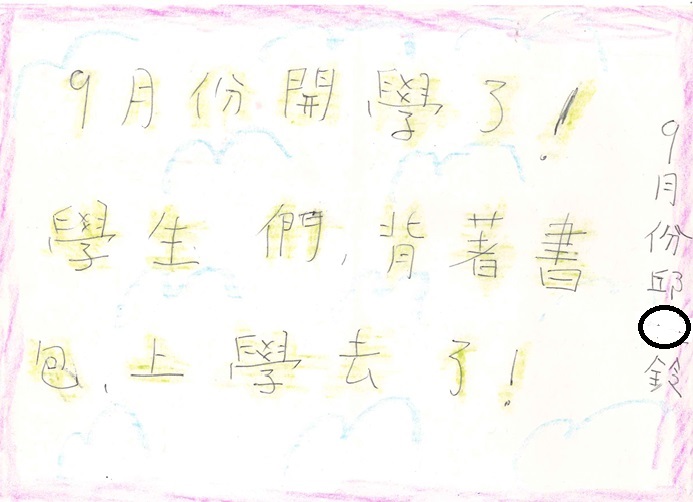 9月份開學了!
學生們,背著書
包,上學去了!
9月份邱 鈴